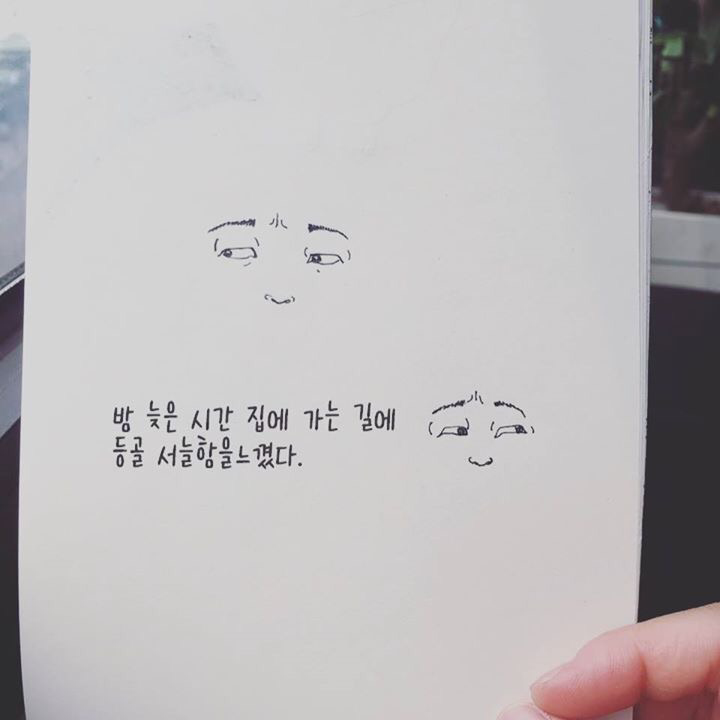 밤 늦은 시간 집에 가는 길에
등골 서늘함을느꼈다.